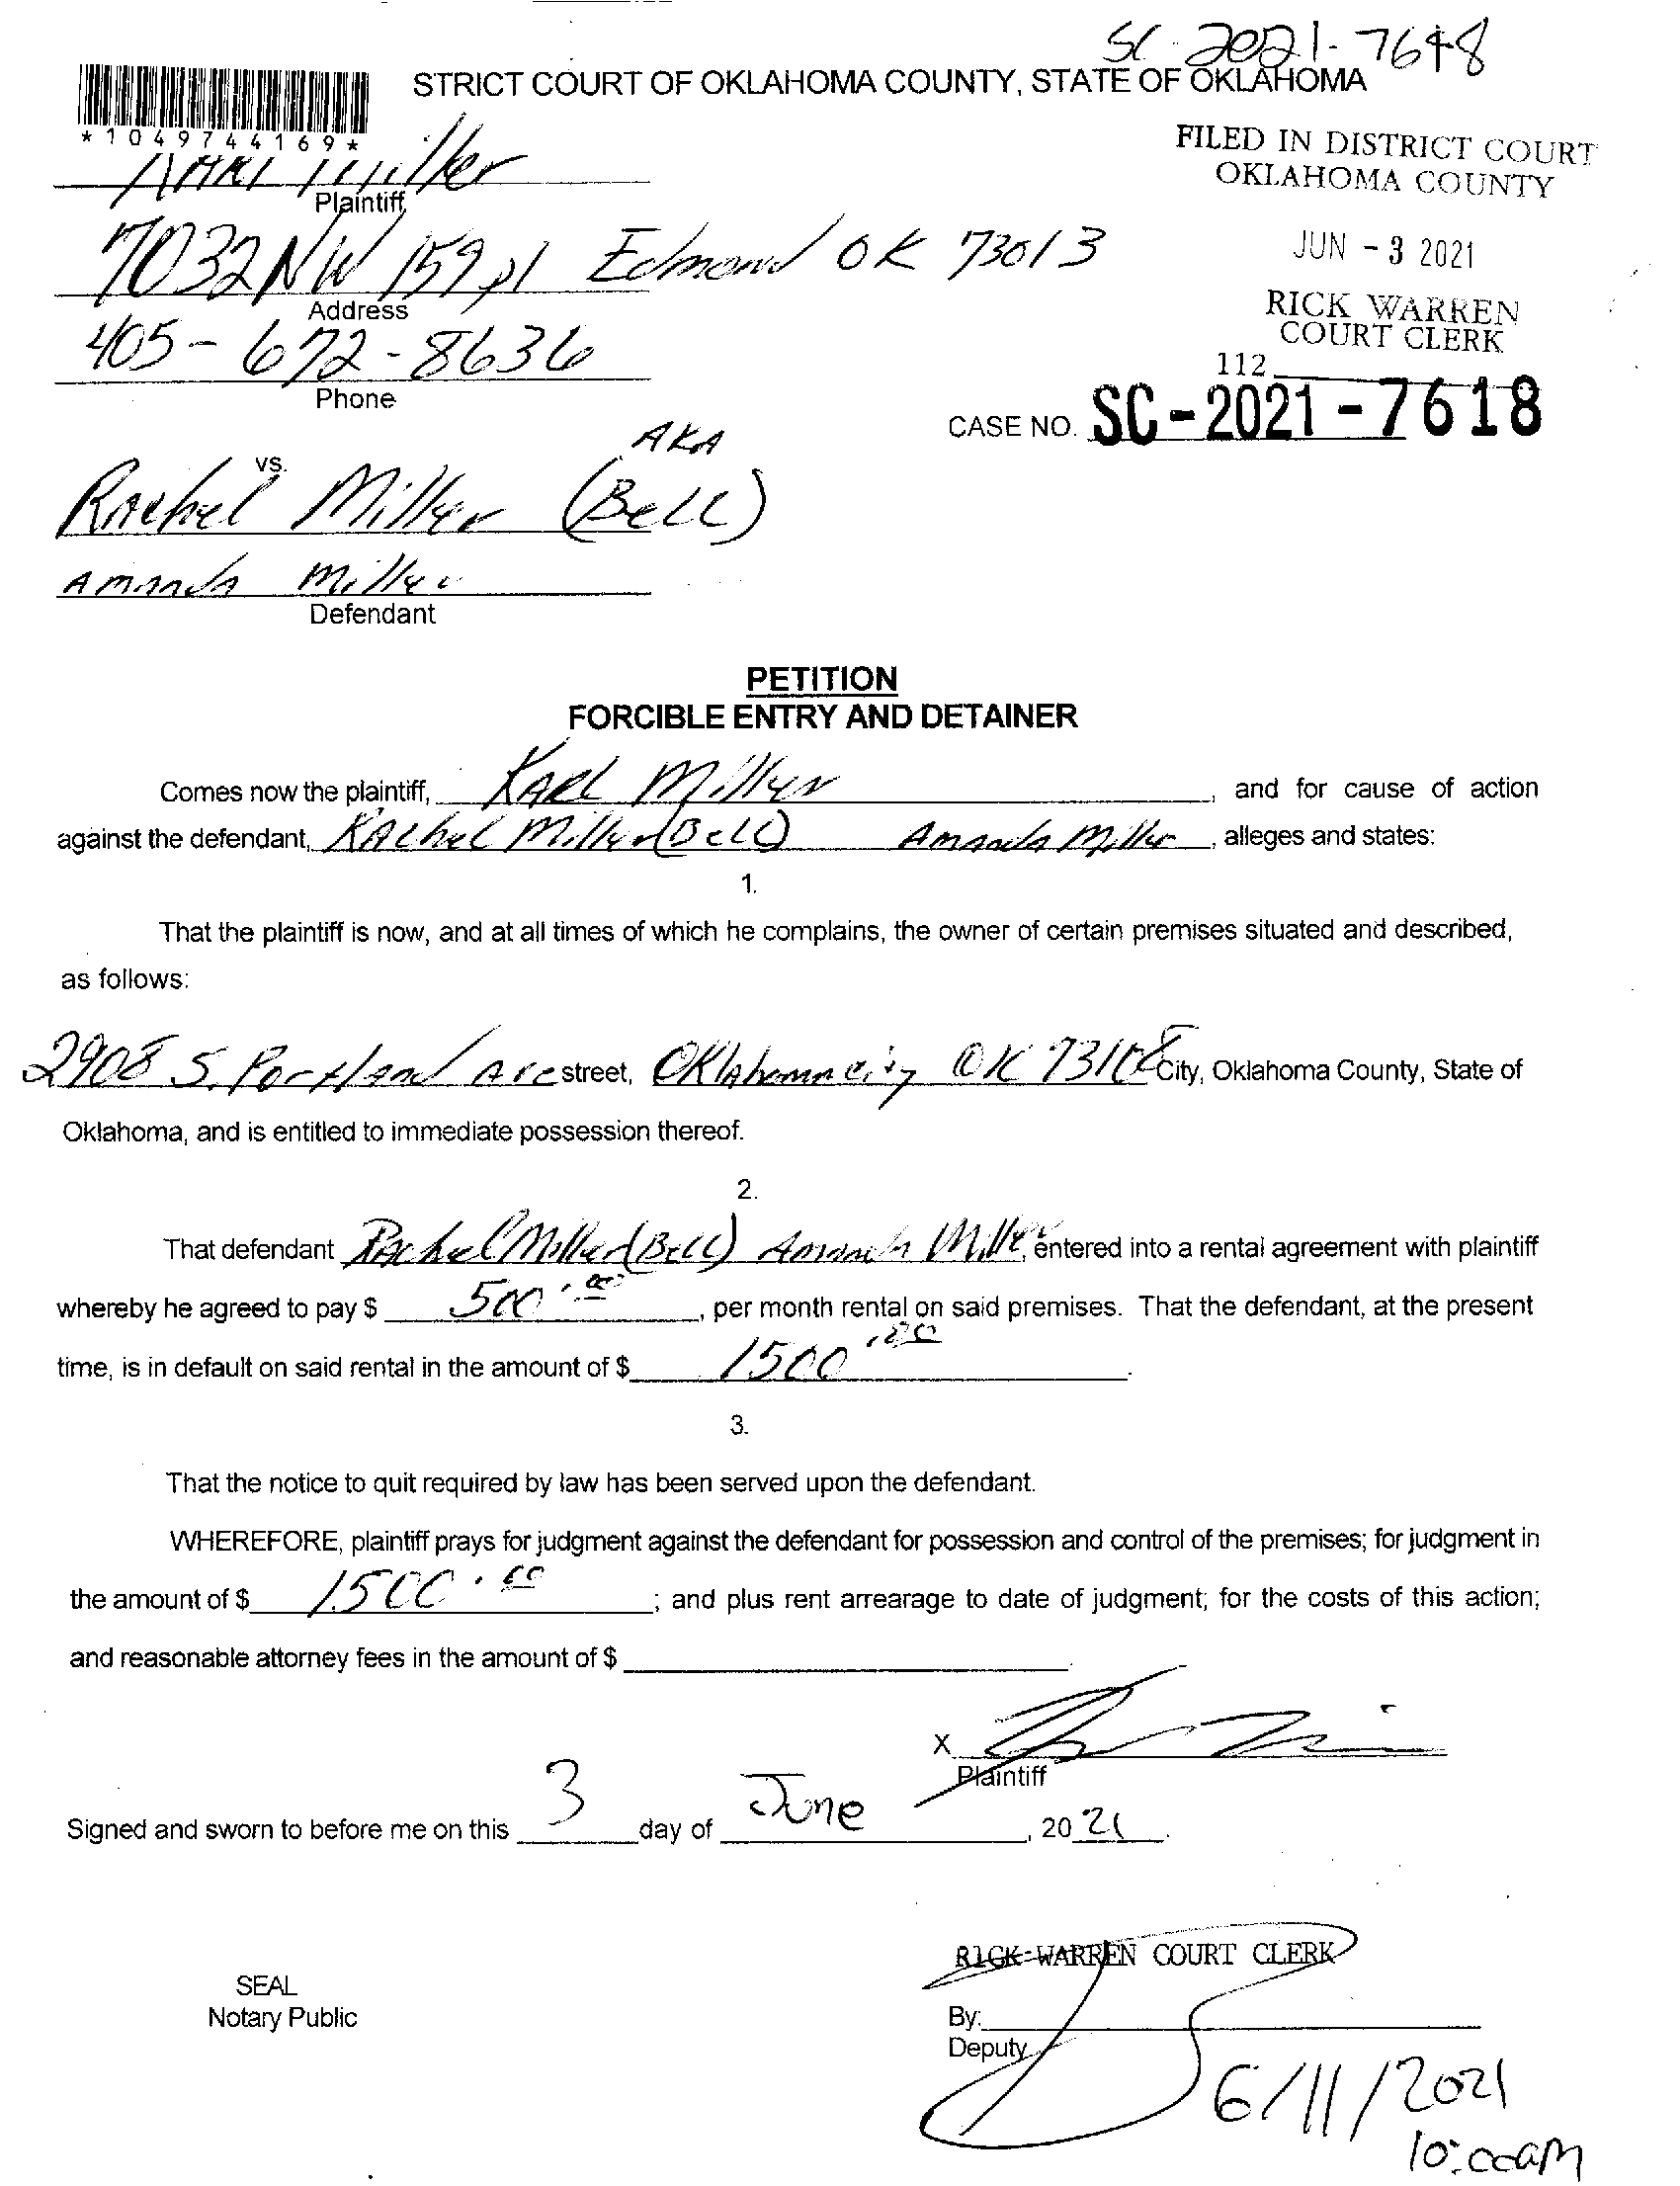 SC-2021-7618
STRICT COURT OF OKLAHOMA COUNTY, STATE OF OKLAHOMA
*1049744169*
FILED IN DISTRICT COURT
OKLAHOMA COUNTY
KARl Miller
Plaintiff
JUN - 3 2021
7032 NW 159 pl Edmond OK 73013
Address
RICK WARREN
COURT CLERK
405-672-8636
Phone
112
CASE NO. SC-2021-7618
AKA
vs.
RAchel Miller (BeLL)
AmAndA Miller
Defendant
PETITION
FORCIBLE ENTRY AND DETAINER
Comes now the plaintiff, KARL Miller, and for cause of action
against the defendant, RAchel Miller (BeLL) AmAndA Miller, alleges and states:
1.
That the plaintiff is now, and at all times of which he complains, the owner of certain premises situated and described,
as follows:
2908 S. Portland Ave street, OKlAhomA City OK 73108 City, Oklahoma County, State of
Oklahoma, and is entitled to immediate possession thereof.
2.
That defendant RAchel Miller (BeLL) AmAndA Miller, entered into a rental agreement with plaintiff
whereby he agreed to pay $ 500.00, per month rental on said premises. That the defendant, at the present
time, is in default on said rental in the amount of $ 1500.00.
3.
That the notice to quit required by law has been served upon the defendant.
WHEREFORE, plaintiff prays for judgment against the defendant for possession and control of the premises; for judgment in
the amount of $ 1500.00; and plus rent arrearage to date of judgment; for the costs of this action;
and reasonable attorney fees in the amount of $
X
Plaintiff
Signed and sworn to before me on this 3 day of June, 2021.
RICK WARREN COURT CLERK
SEAL
Notary Public
By:
Deputy
6/11/2021
10:00am